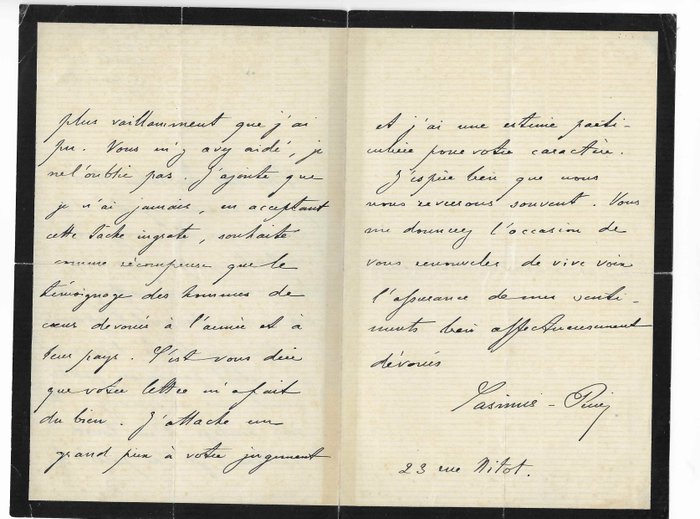 plus vaillamment que j'ai
pu. Vous m'y avez aidé, je
ne l'oublie pas. J'ajoute que
je n'ai jamais, en acceptant
cette tâche ingrate, souhaité
comme récompense que le
témoignage des hommes de
cœur dévoués à l'armée et à
leur pays. C'est vous dire
que votre lettre m'a fait
du bien. J'attache un
grand prix à votre jugement
et j'ai une estime parti-
culière pour votre caractère.
J'espère bien que nous
nous reverrons souvent. Vous
me donnerez l'occasion de
vous renouveler de vive voix
l'assurance de mes senti-
ments bien affectueusement
dévoués
Casimir-Perier
23 rue Nitot.